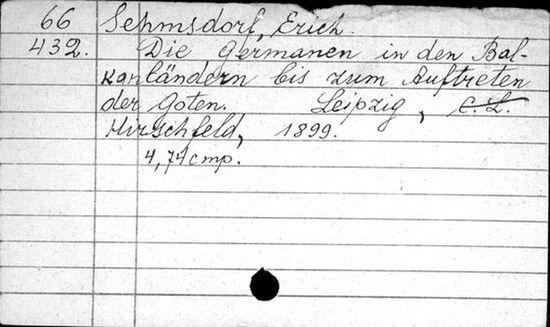 66 Sehmsdorf, Erich.
432. Die Germanen in den Bal-
kanländern bis zum Auftreten
der Goten. Leipzig, C. L.
Hirschfeld, 1899.
4, 74 стр.